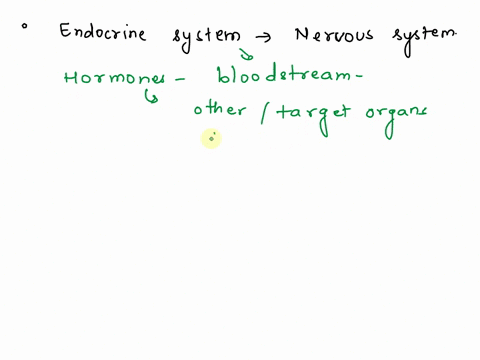 ° Endocrine system → Nervous system
Hormones - bloodstream -
other / target organs